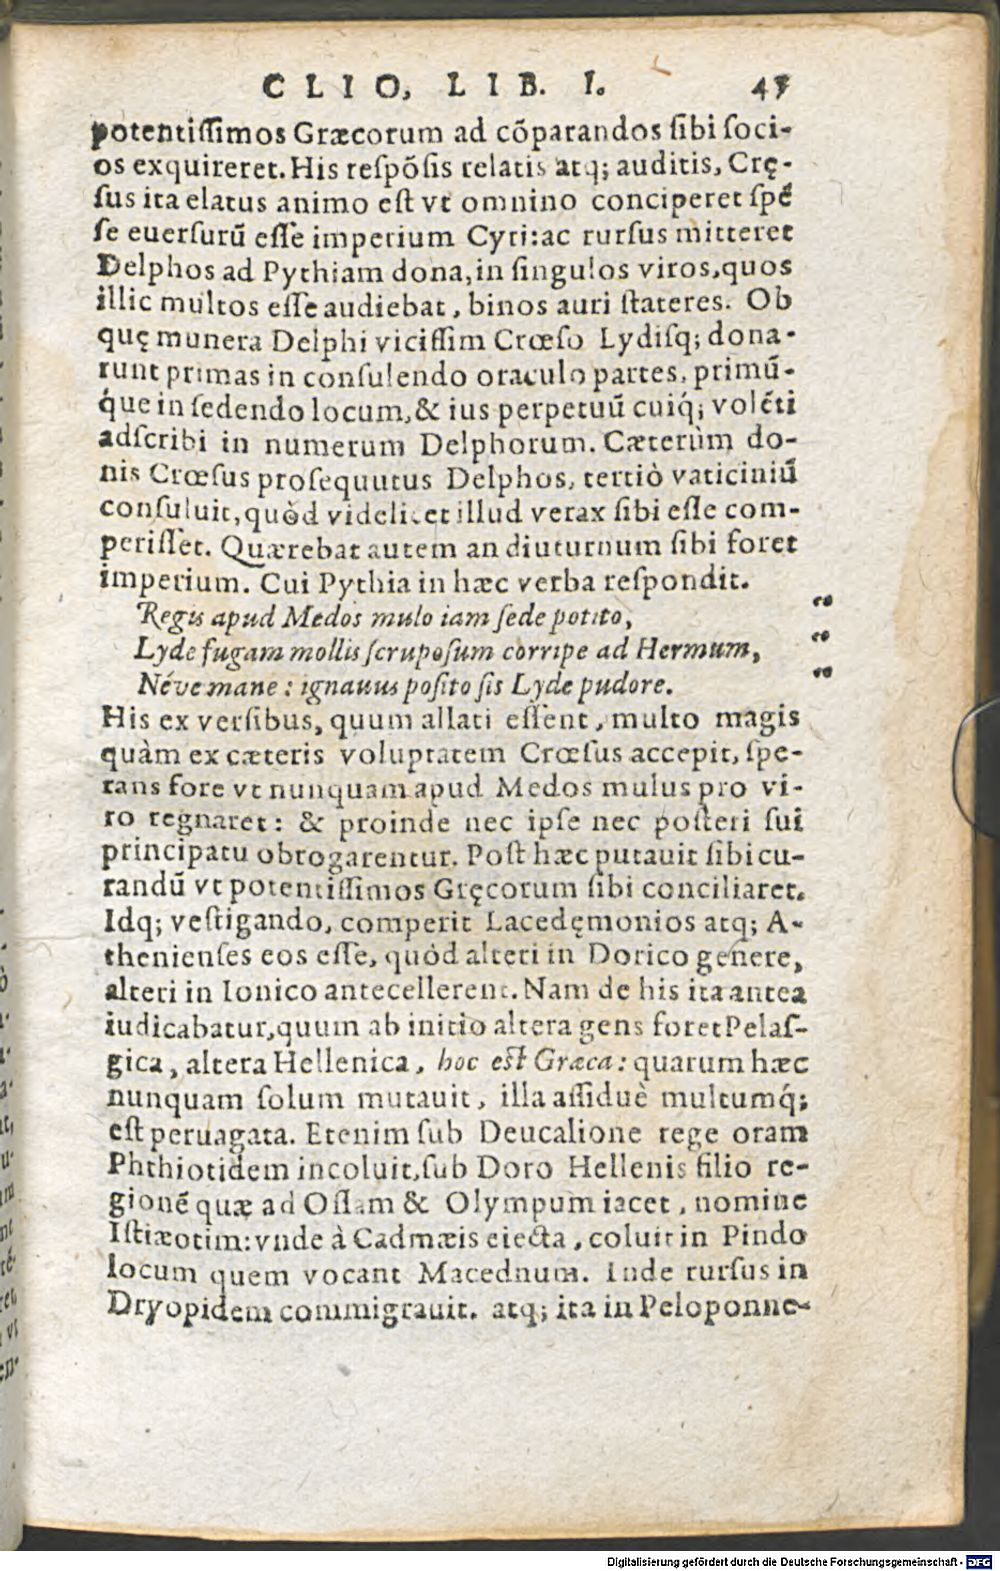 CLIO, LIB. I. 45
potentissimos Græcorum ad cõparandos sibi soci-
os exquireret. His respõsis relatis atq; auditis, Crę-
sus ita elatus animo est vt omnino conciperet spẽ
se euersurũ esse imperium Cyri: ac rursus mitteret
Delphos ad Pythiam dona, in singulos viros, quos
illic multos esse audiebat, binos auri stateres. Ob
quę munera Delphi vicissim Crœso Lydisq; dona-
runt primas in consulendo oraculo partes, primũ-
q́ue in sedendo locum, & ius perpetuũ cuiq́; volẽti
adscribi in numerum Delphorum. Cæterùm do-
nis Crœsus prosequutus Delphos, tertiò vaticiniũ
consuluit, quòd videlicet illud verax sibi esse com-
perisset. Quærebat autem an diuturnum sibi foret
imperium. Cui Pythia in hæc verba respondit.
Regis apud Medos mulo iam sede potito,
Lyde fugam mollis scruposum corripe ad Hermum,
Néve mane: ignauus posito sis Lyde pudore.
His ex versibus, quum allati essent, multo magis
quàm ex cæteris voluptatem Crœsus accepit, spe-
rans fore vt nunquam apud Medos mulus pro vi-
ro regnaret: & proinde nec ipse nec posteri sui
principatu obrogarentur. Post hæc putauit sibi cu-
randũ vt potentissimos Gręcorum sibi conciliaret.
Idq; vestigando, comperit Lacedęmonios atq; A-
thenienses eos esse, quòd alteri in Dorico genere,
alteri in Ionico antecellerent. Nam de his ita antea
iudicabatur, quum ab initio altera gens foret Pelas-
gica, altera Hellenica, hoc est Græca: quarum hæc
nunquam solum mutauit, illa assiduè multumq́;
est peruagata. Etenim sub Deucalione rege oram
Phthiotidem incoluit, sub Doro Hellenis filio re-
gionẽ quæ ad Ossam & Olympum iacet, nomine
Istiæotim: vnde à Cadmæis eiecta, coluit in Pindo
locum quem vocant Macednum. Inde rursus in
Dryopidem commigrauit. atq; ita in Peloponne-
Digitalisierung gefördert durch die Deutsche Forschungsgemeinschaft - DFG